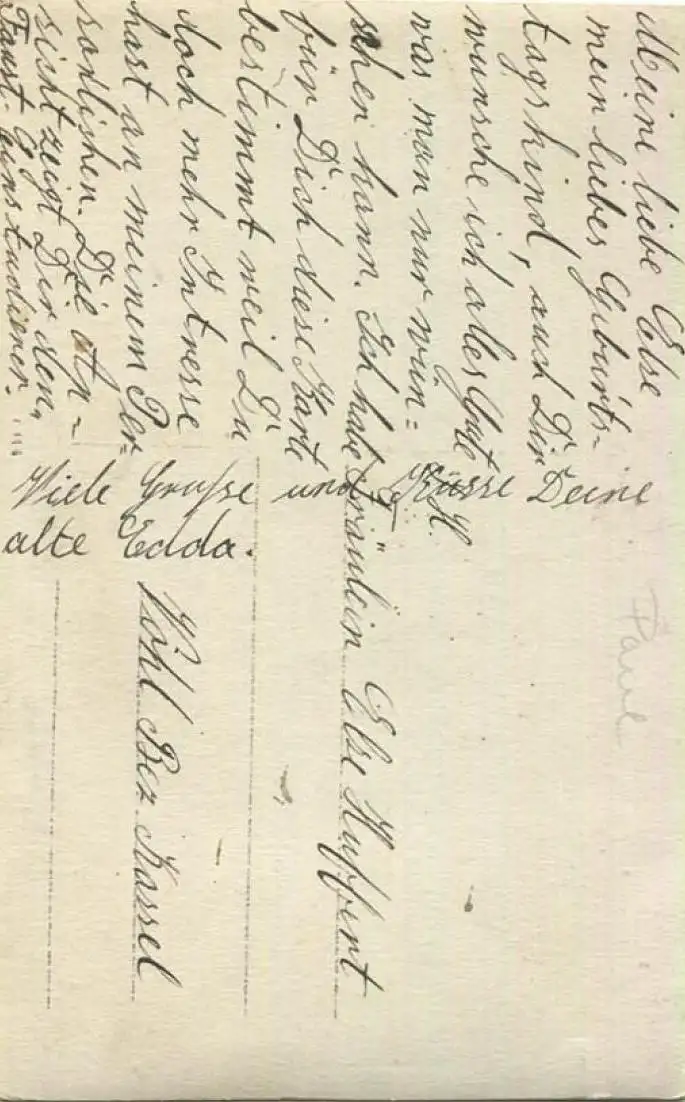 Meine liebe Else
mein liebes Geburts-
tagskind, auch Dir
wünsche ich alles Gute
was man nur wün=
schen kann. Ich habe
für Dich diese Karte
bestimmt weil Du
doch mehr Intresse
hast an meinem Per=
sönlichen. Die An-
sicht zeigt Dir den
Faust.
Viele Grüsse und Küsse Deine
alte Edda.
Fräulein Else Huffert
Vöhl Bez. Kassel
Paul